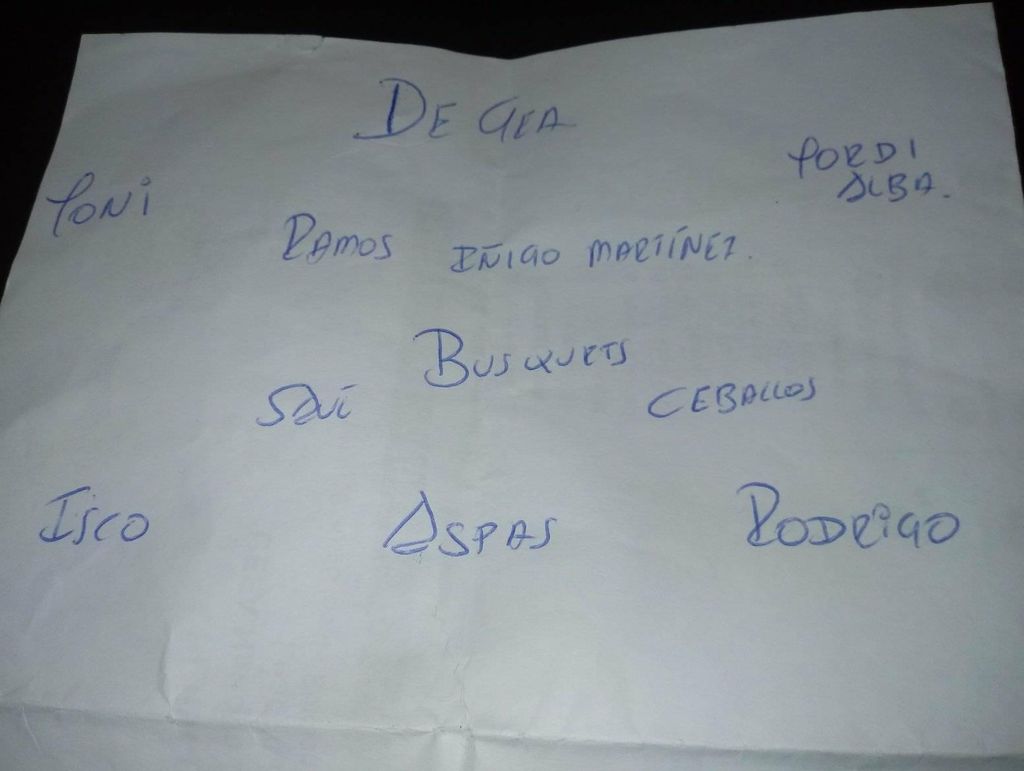 DE GEA
JORDI
ALBA.
JONI
RAMOS IÑIGO MARTÍNEZ.
BUSQUETS
SAÚL CEBALLOS
ISCO ASPAS RODRIGO